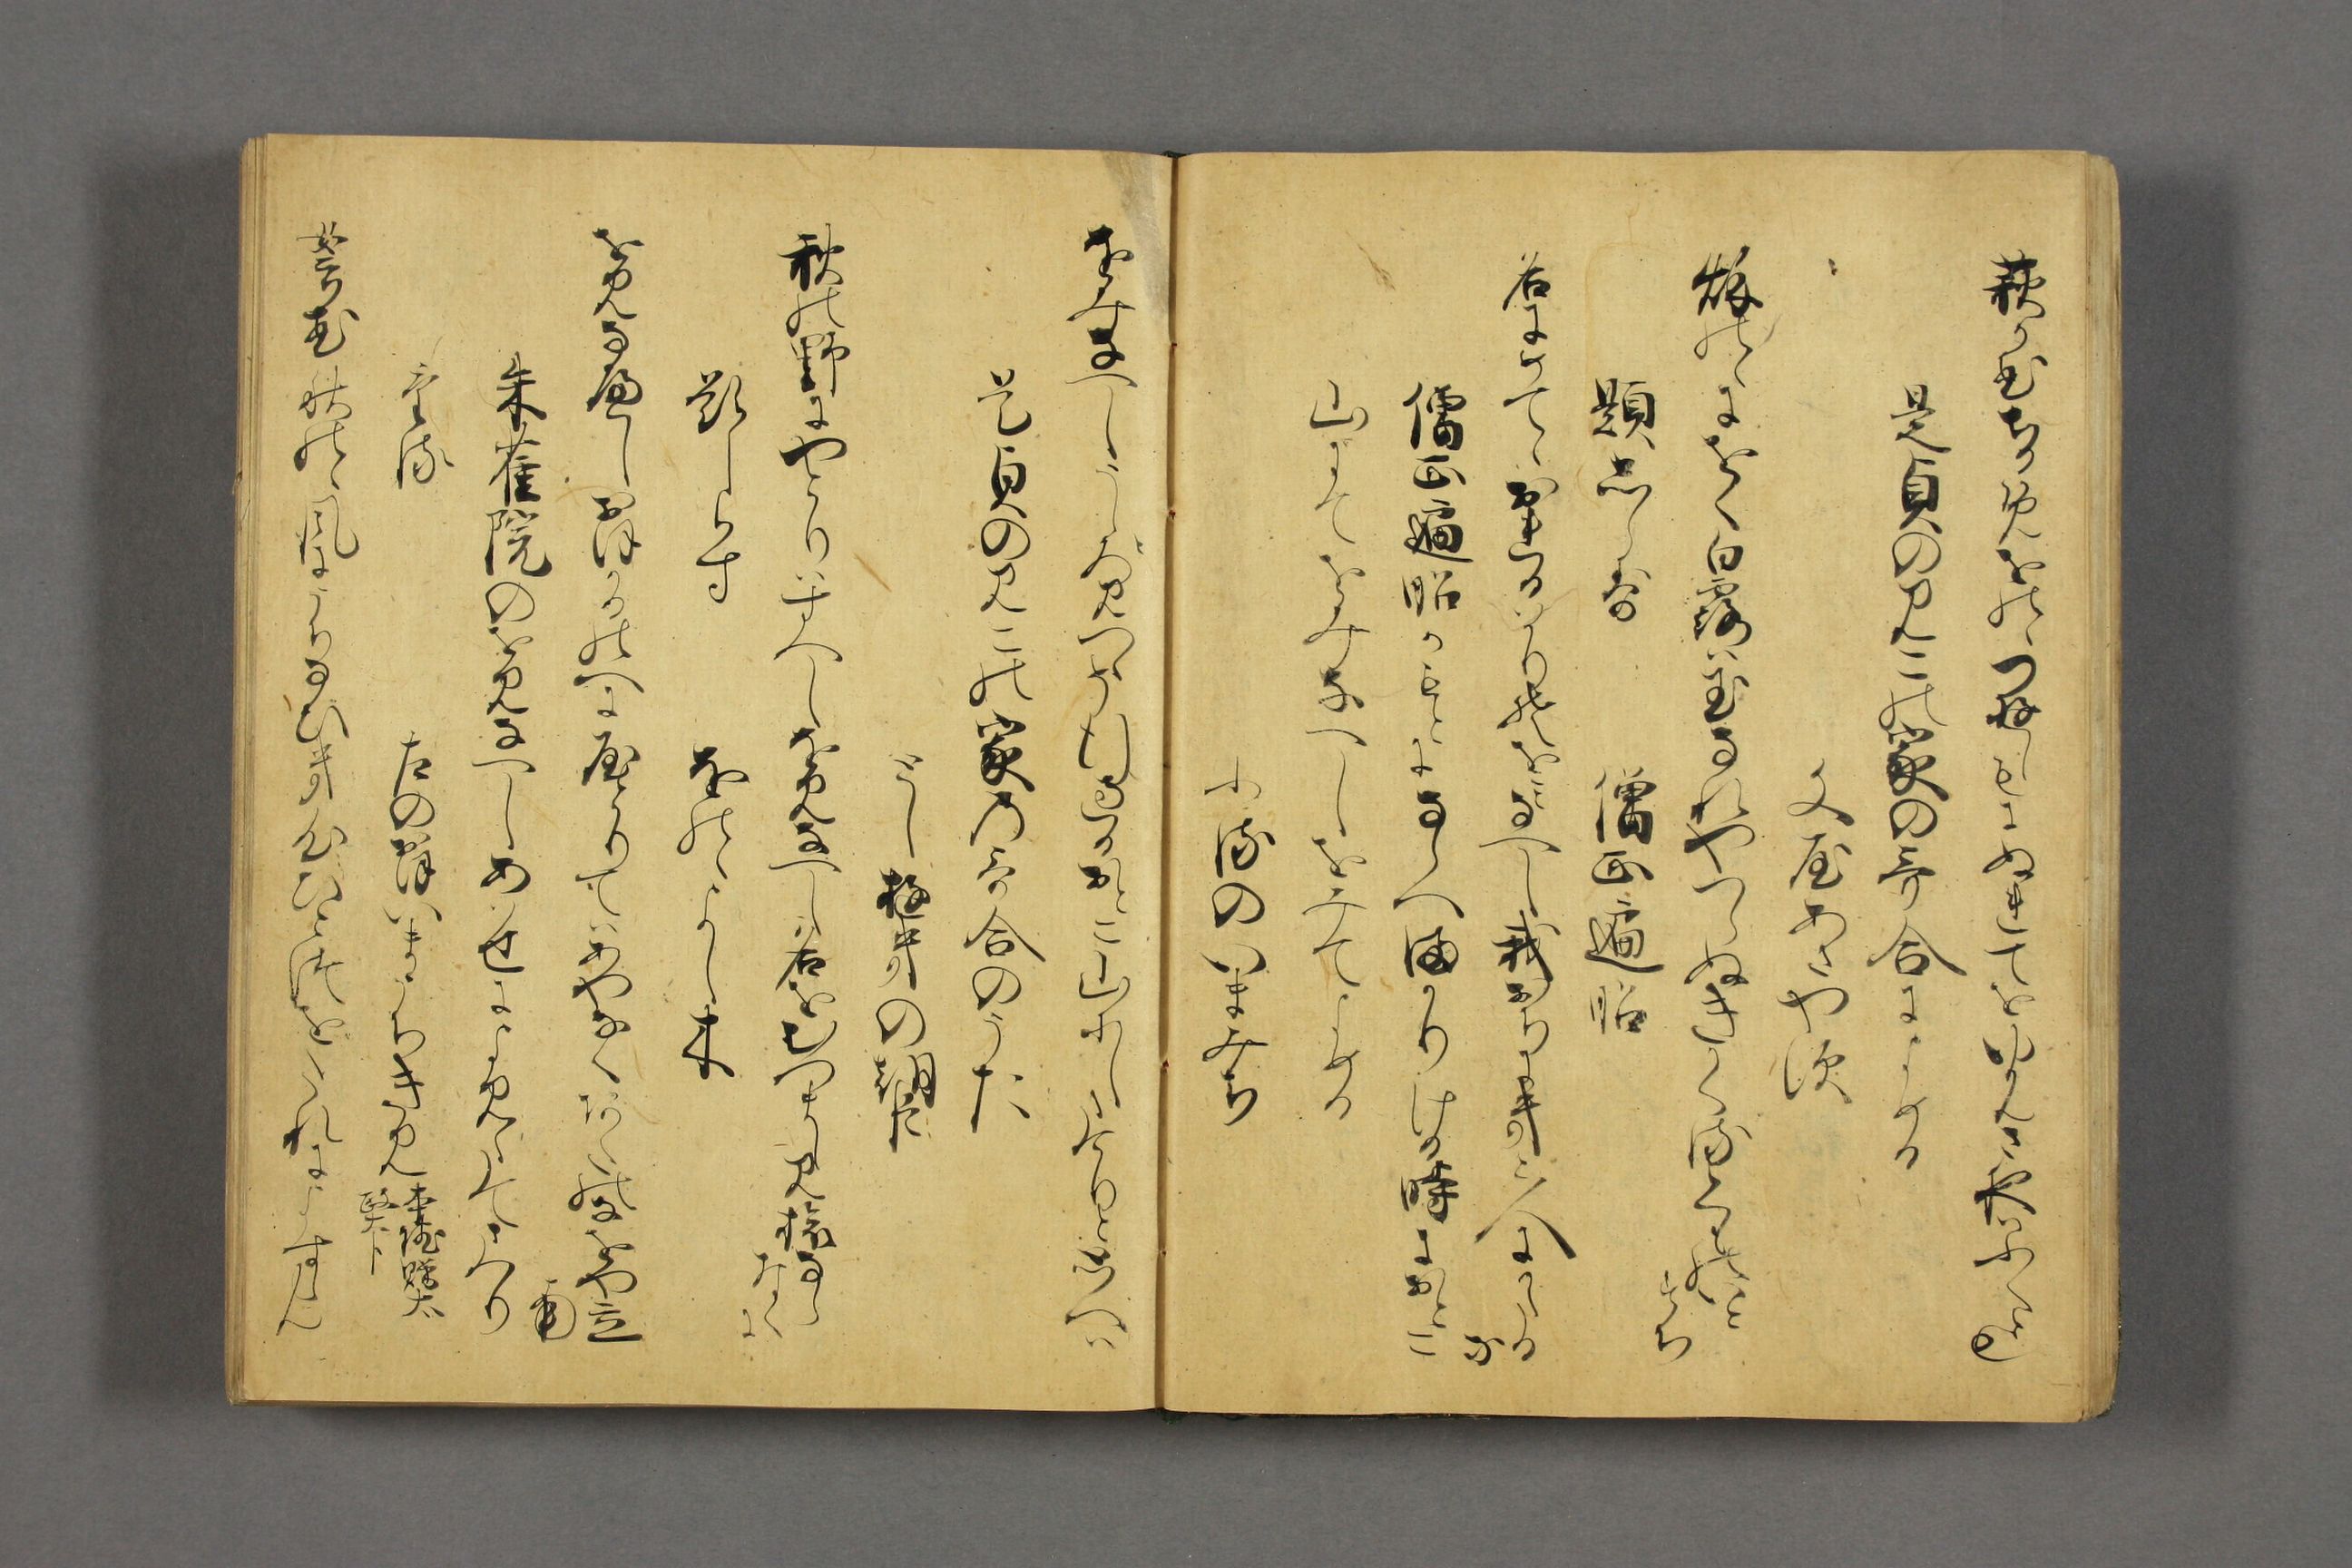 萩か花ちるらんをのゝつゆしもにぬれてをゆかんさ夜はふくとも
是貞のみこの家の哥合によめる
文屋あさやす
秋のゝにをく白露は玉なれやつらぬきかくるくものいと
すち
題しらす
僧正遍昭
名にめてゝおれるはかりそをみなへし我おちにきと人にかたる
な
僧正遍昭かもとにならへまかりける時におとこ
山にてをみなへしをみてよめる
ふるのいまみち
をみなへしうしとみつゝそゆきすくるおとこ山にしたてりとおもへは
是貞のみこの家の哥合のうた
としゆきの朝臣
秋の野にやとりはすへしをみなへし名をむつましみ旅な
らなくに
題しらす
をのゝよし木
をみなへしおほかるのへにやとりせはあやなくあたの名をや立
南
朱雀院のをみなへしあはせによみてたてまつり
ける
左のおほいまうちきみ
女郎花秋のゝ風にうちなひき心ひとつをたれによすらん